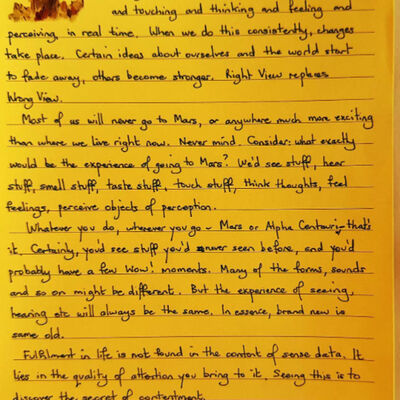 and touching and thinking and feeling and
perceiving, in real time. When we do this consistently, changes
take place. Certain ideas about ourselves and the world start
to fade away, others become stronger. Right View replaces
Wrong View.
Most of us will never go to Mars, or anywhere much more exciting
than where we live right now. Never mind. Consider: what exactly
would be the experience of going to Mars? We'd see stuff, hear
stuff, smell stuff, taste stuff, touch stuff, think thoughts, feel
feelings, perceive objects of perception.
Whatever you do, wherever you go - Mars or Alpha Centauri - that's
it. Certainly, you'd see stuff you'd never seen before, and you'd
probably have a few Wow! moments. Many of the forms, sounds
and so on might be different. But the experience of seeing,
hearing etc will always be the same. In essence, brand new is
same old.
Fulfilment in life is not found in the content of sense data. It
lies in the quality of attention you bring to it. Seeing this is to
discover the secret of contentment.